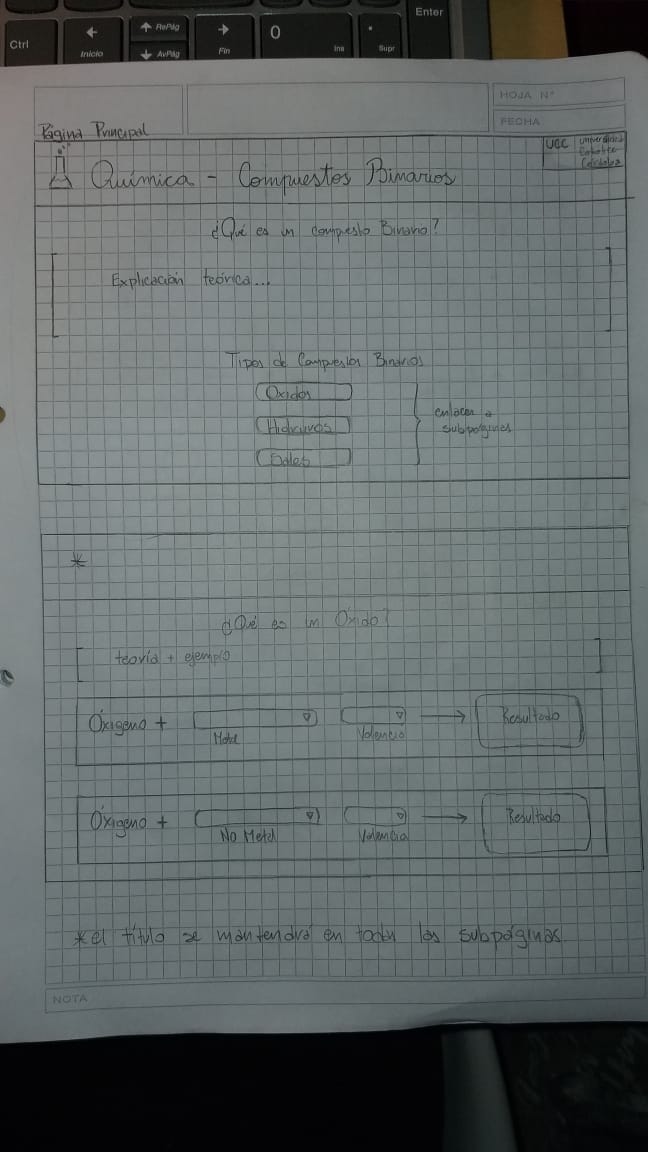 Enter
Ctrl
Inicio
RePág
AvPág
Fin
0
Ins
.
Supr
HOJA N°
FECHA
Página Principal
UCC
Universidad
Católica
Córdoba
Química - Compuestos Binarios
¿Qué es un compuesto Binario?
Explicación teórica...
Tipos de Compuestos Binarios
Oxidos
Hidruros
Sales
enlaces a
subpáginas
*
¿Qué es un Óxido?
teoría + ejemplo
Óxigeno +
Metal
Valencia
Resultado
Óxigeno +
No Metal
Valencia
Resultado
*el título se mantendrá en todas las subpáginas.
NOTA